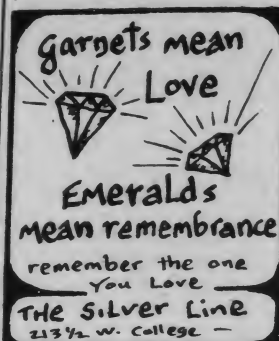 Garnets mean
Love
EmeraLds
mean remembrance
remember the one
You Love
THE SiLver Line
213½ W. College —